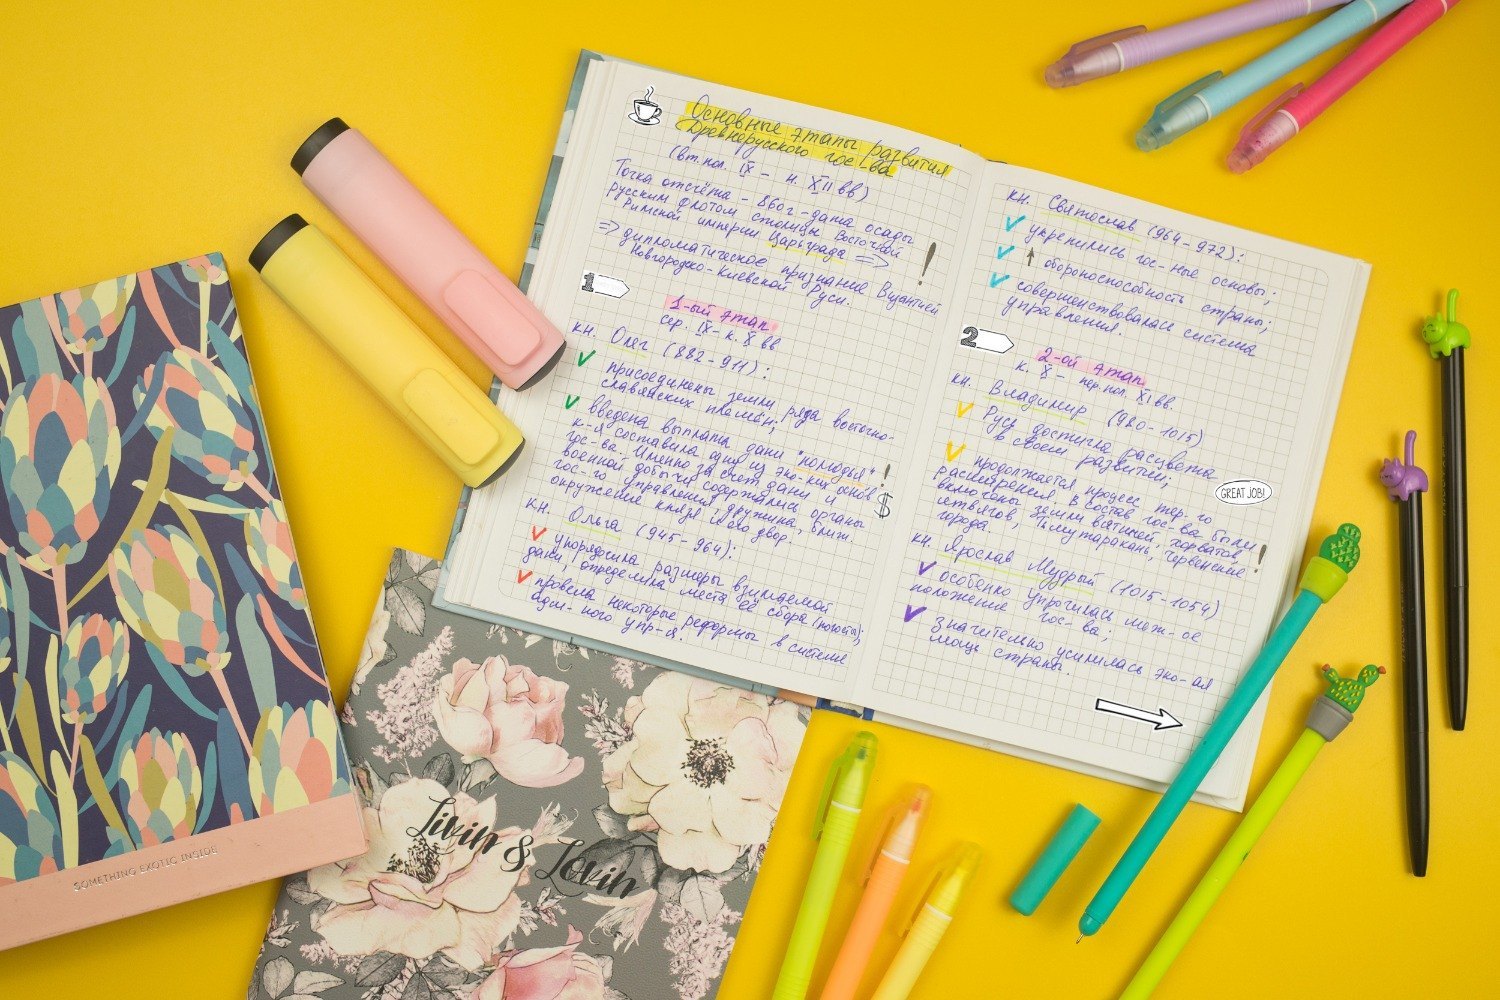 Основные этапы развития
Древнерусского гос-ва
(вт. пол. IX – н. XII вв)
Точка отсчёта – 860г – дата осады
русским флотом столицы Восточной
Римской империи Царьграда =>
=> дипломатическое признание Византией
Новгородско-Киевской Руси.
!
1
1-ый этап
сер. IX – к. X вв
кн. Олег (882 – 911):
присоединены земли ряда восточно-
славянских племён;
введена выплата дани "полюдья"
к-я составила одну из эко-ких основ
гос-ва. Именно за счёт дани и
военной добычи содержались органы
гос-го управления, дружина, ближ.
окружение князя и его двор.
!
$
кн. Ольга (945 – 964):
упорядочила размеры взимаемой
дани, определила места её сбора (погосты);
провела некоторые реформы в системе
адм-ного упр-я.
кн. Святослав (964 – 972):
укрепились гос-ные основы;
↑ обороноспособность страны;
совершенствовалась система
управления.
2
2-ой этап
к. X – пер. пол. XI вв.
кн. Владимир (980 – 1015)
Русь достигла расцвета
в своём развитии;
продолжается процесс тер-го
расширения. В состав гос-ва были
включены земли вятичей, хорватов,
ятвягов, Тьмутаракань, Червенские
города.
GREAT JOB!
!
кн. Ярослав Мудрый (1015 – 1054)
особенно упрочилась меж-ое
положение гос-ва;
значительно усилилась эко-ая
мощь страны.
SOMETHING EXOTIC INSIDE
Livin & Lovin